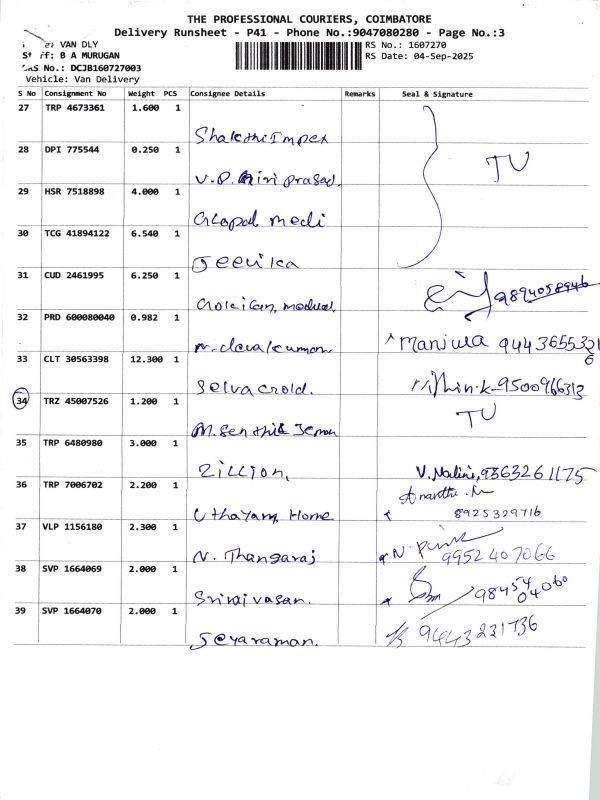 THE PROFESSIONAL COURIERS, COIMBATORE
Delivery Runsheet - P41 - Phone No.:9047080280 - Page No.:3
VAN DLY
RS No.: 1607270
B A MURUGAN
RS Date: 04-Sep-2025
No.: DCJB160727003
Vehicle: Van Delivery
S No Consignment No Weight PCS Consignee Details Remarks Seal & Signature
27 TRP 4673361 1.600 1
Shakthi Impex
28 DPI 775544 0.250 1
TV
V.P. Giri Prasad.
29 HSR 7518898 4.000 1
Gopal Medi
30 TCG 41894122 6.540 1
Jeerika
31 CUD 2461995 6.250 1
9894058946
32 PRD 600080040 0.982 1
Manjula 9443655320
33 CLT 30563398 12.300 1
Selva Gold.
Nithin.k-9500966313
34 TRZ 45007526 1.200 1
TV
M. Senthil
35 TRP 6480980 3.000 1
Zillion,
V. Nalini, 9363261175
36 TRP 7006702 2.200 1
8925329716
Uthayam Home
37 VLP 1156180 2.300 1
N.
9952407066
N. Thangaraj
38 SVP 1664069 2.000 1
9845404060
Srinivasan.
39 SVP 1664070 2.000 1
9443231736
Jeyaraman.